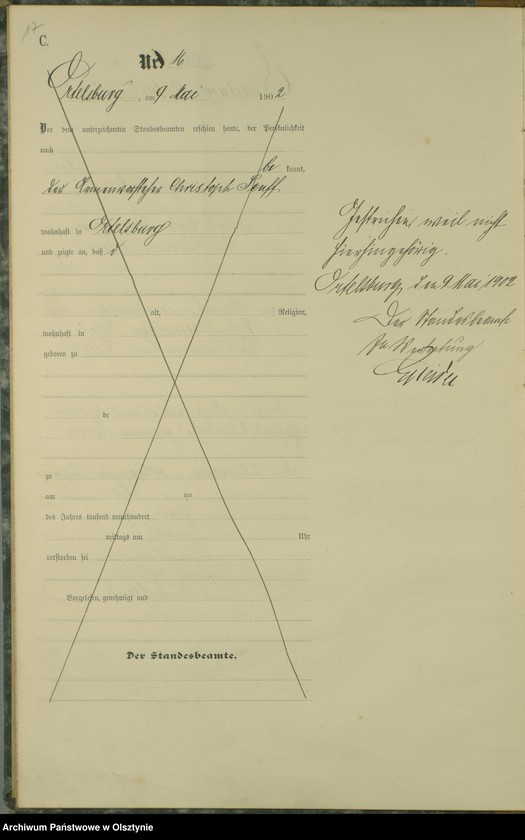 17
C.
Nr. 16
Ortelsburg, am 9 Mai 1902
Vor dem unterzeichneten Standesbeamten erschien heute, der Persönlichkeit
nach
be kannt,
der Christoph
wohnhaft in Ortelsburg
und zeigte an, daß d
alt, Religion,
wohnhaft in
geboren zu
de
zu
am ten
des Jahres tausend neunhundert
mittags um Uhr
verstorben sei
Vorgelesen, genehmigt und
Der Standesbeamte.
Gestrichen, weil nicht
hierhingehörig.
Ortelsburg, den 9 Mai 1902
Der Standesbeamte
In Vertretung
Archiwum Państwowe w Olsztynie